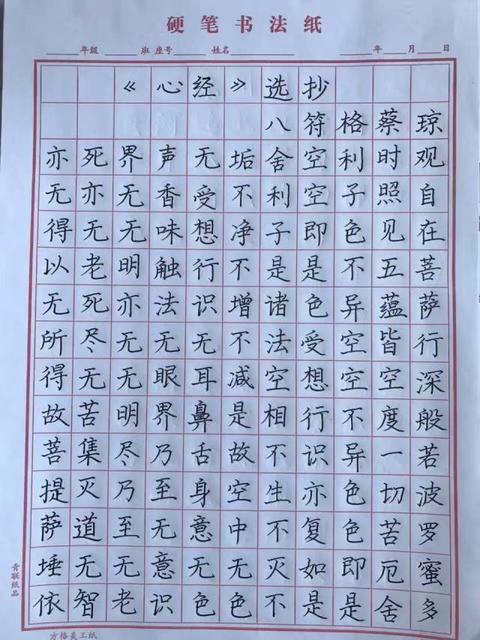 硬笔书法纸
年级 班 座号 姓名 年 月 日
《心经》选抄
八符格蔡琼
观自在菩萨行深般若波罗蜜多
时照见五蕴皆空度一切苦厄舍
利子色不异空空不异色色即是
空空即是色受想行识亦复如是
舍利子是诸法空相不生不灭不
垢不净不增不减是故空中无色
无受想行识无耳鼻舌身意无色
声香味触法无眼界乃至无意识
界无无明亦无无明尽乃至无老
死亦无老死尽无苦集灭道无智
亦无得以无所得故菩提萨埵依
青联纸品
方格美工纸